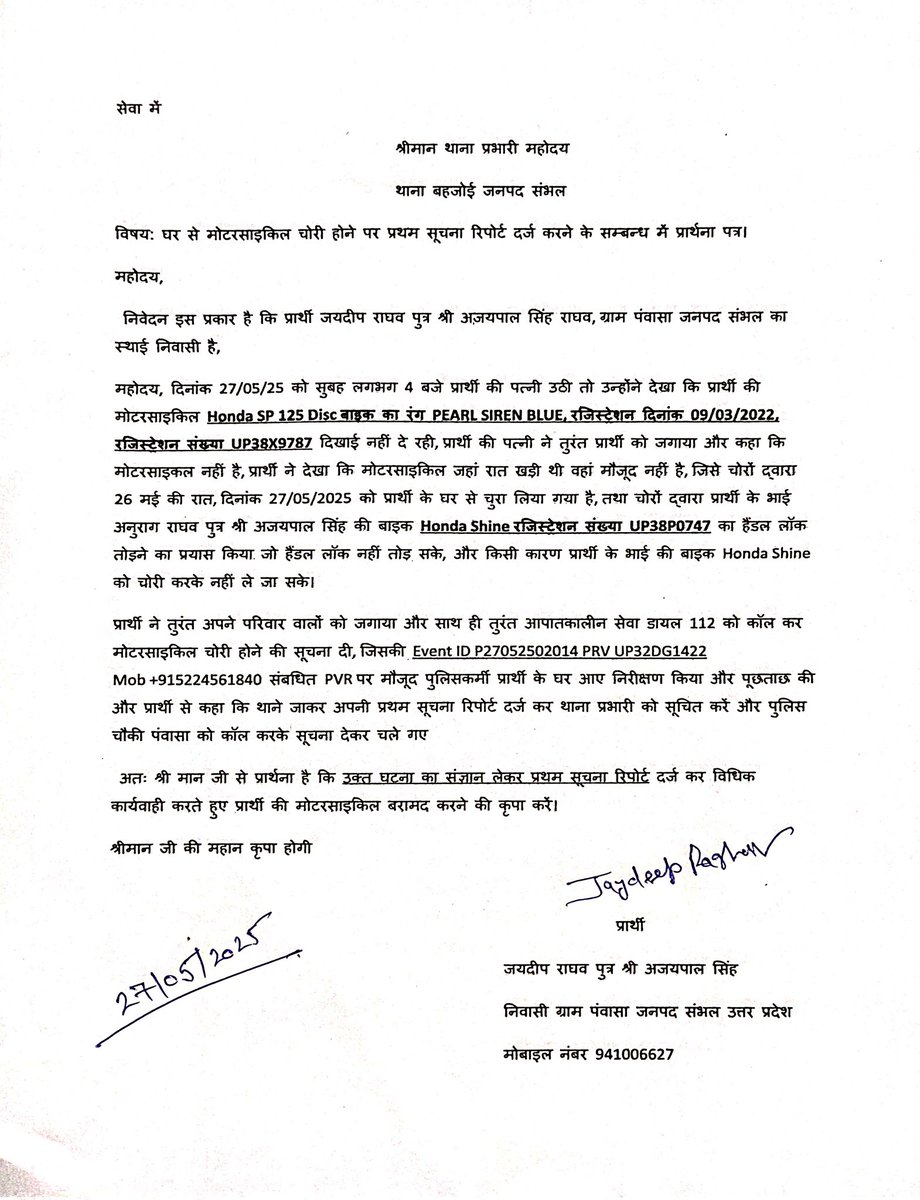 सेवा में
श्रीमान थाना प्रभारी महोदय
थाना बहजोई जनपद संभल
विषय: घर से मोटरसाइकिल चोरी होने पर प्रथम सूचना रिपोर्ट दर्ज करने के सम्बन्ध में प्रार्थना पत्र।
महोदय,
निवेदन इस प्रकार है कि प्रार्थी जयदीप राघव पुत्र श्री अजयपाल सिंह राघव, ग्राम पंवासा जनपद संभल का
स्थाई निवासी है,
महोदय, दिनांक 27/05/25 को सुबह लगभग 4 बजे प्रार्थी की पत्नी उठी तो उन्होंने देखा कि प्रार्थी की
मोटरसाइकिल Honda SP 125 Disc बाइक का रंग PEARL SIREN BLUE, रजिस्टेशन दिनांक 09/03/2022,
रजिस्टेशन संख्या UP38X9787 दिखाई नहीं दे रही, प्रार्थी की पत्नी ने तुरंत प्रार्थी को जगाया और कहा कि
मोटरसाइकल नहीं है, प्रार्थी ने देखा कि मोटरसाइकिल जहां रात खड़ी थी वहां मौजूद नहीं है, जिसे चोरों द्वारा
26 मई की रात, दिनांक 27/05/2025 को प्रार्थी के घर से चुरा लिया गया है, तथा चोरों द्वारा प्रार्थी के भाई
अनुराग राघव पुत्र श्री अजयपाल सिंह की बाइक Honda Shine रजिस्टेशन संख्या UP38P0747 का हैंडल लॉक
तोड़ने का प्रयास किया जो हैंडल लॉक नहीं तोड़ सके, और किसी कारण प्रार्थी के भाई की बाइक Honda Shine
को चोरी करके नहीं ले जा सके।
प्रार्थी ने तुरंत अपने परिवार वालों को जगाया और साथ ही तुरंत आपातकालीन सेवा डायल 112 को कॉल कर
मोटरसाइकिल चोरी होने की सूचना दी, जिसकी Event ID P27052502014 PRV UP32DG1422
Mob +915224561840 संबधित PVR पर मौजूद पुलिसकर्मी प्रार्थी के घर आए निरीक्षण किया और पूछताछ की
और प्रार्थी से कहा कि थाने जाकर अपनी प्रथम सूचना रिपोर्ट दर्ज कर थाना प्रभारी को सूचित करें और पुलिस
चौकी पंवासा को कॉल करके सूचना देकर चले गए
अतः श्री मान जी से प्रार्थना है कि उक्त घटना का संज्ञान लेकर प्रथम सूचना रिपोर्ट दर्ज कर विधिक
कार्यवाही करते हुए प्रार्थी की मोटरसाइकिल बरामद करने की कृपा करें।
श्रीमान जी की महान कृपा होगी
Jaydeep Raghav
प्रार्थी
27/05/2025
जयदीप राघव पुत्र श्री अजयपाल सिंह
निवासी ग्राम पंवासा जनपद संभल उत्तर प्रदेश
मोबाइल नंबर 941006627